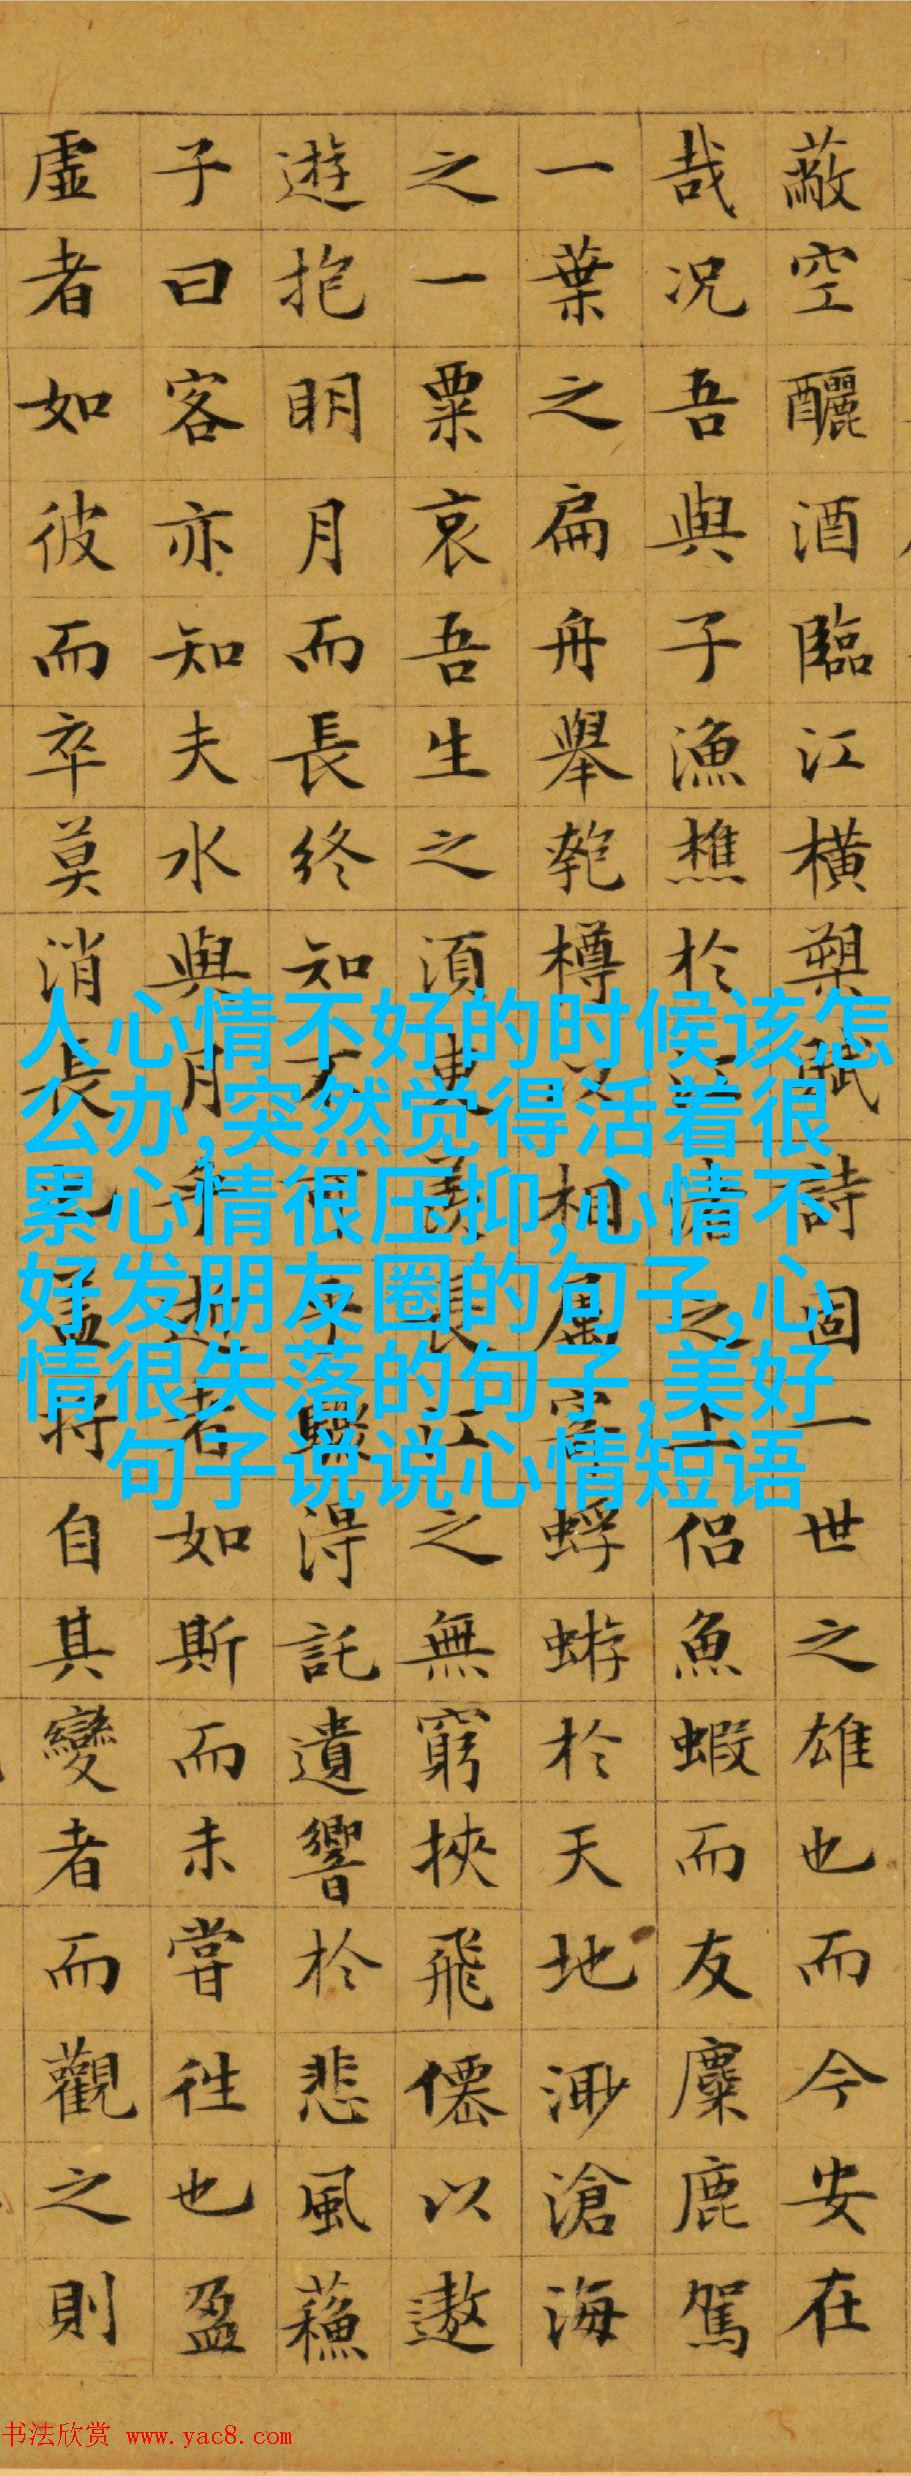 蔽空釃酒臨江橫槊賦詩固一世之雄也而今安在
哉况吾與子漁樵於江渚之上侶魚蝦而友麋鹿駕
一葉之扁舟舉匏樽以相屬寄蜉蝣於天地渺滄海
之一粟哀吾生之須臾羨長江之無窮挾飛僊以遨
遊抱明月而長終知不可乎驟得託遺響於悲風蘓
子曰客亦知夫水與月乎逝者如斯而未嘗往也盈
虛者如彼而卒莫消長也盖將自其變者而觀之則
人心情不好的时候该怎
么办,突然觉得活着很
累心情很压抑,心情不
好发朋友圈的句子,心
情很失落的句子,美好
句子说说心情短语
书法欣赏 www.yac8.com